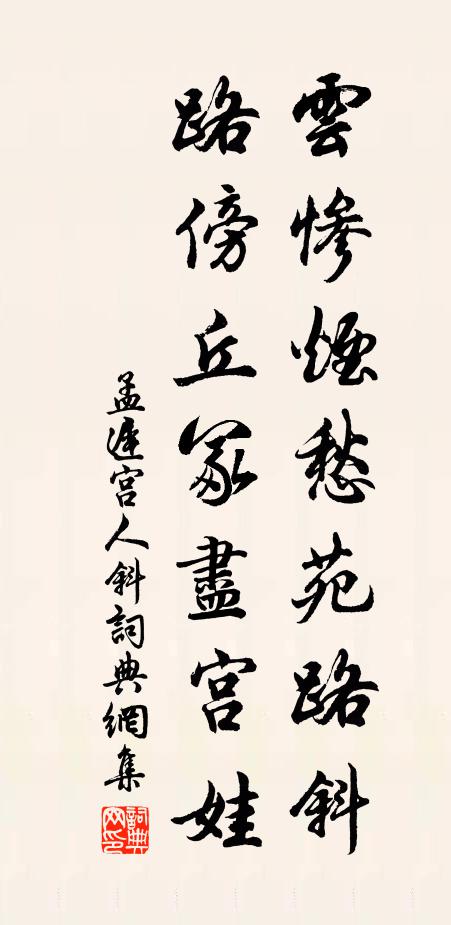 雲慘煙愁苑路斜
路傍丘冢盡宮娃
孟遲宮人斜詞典網集
詞典網印